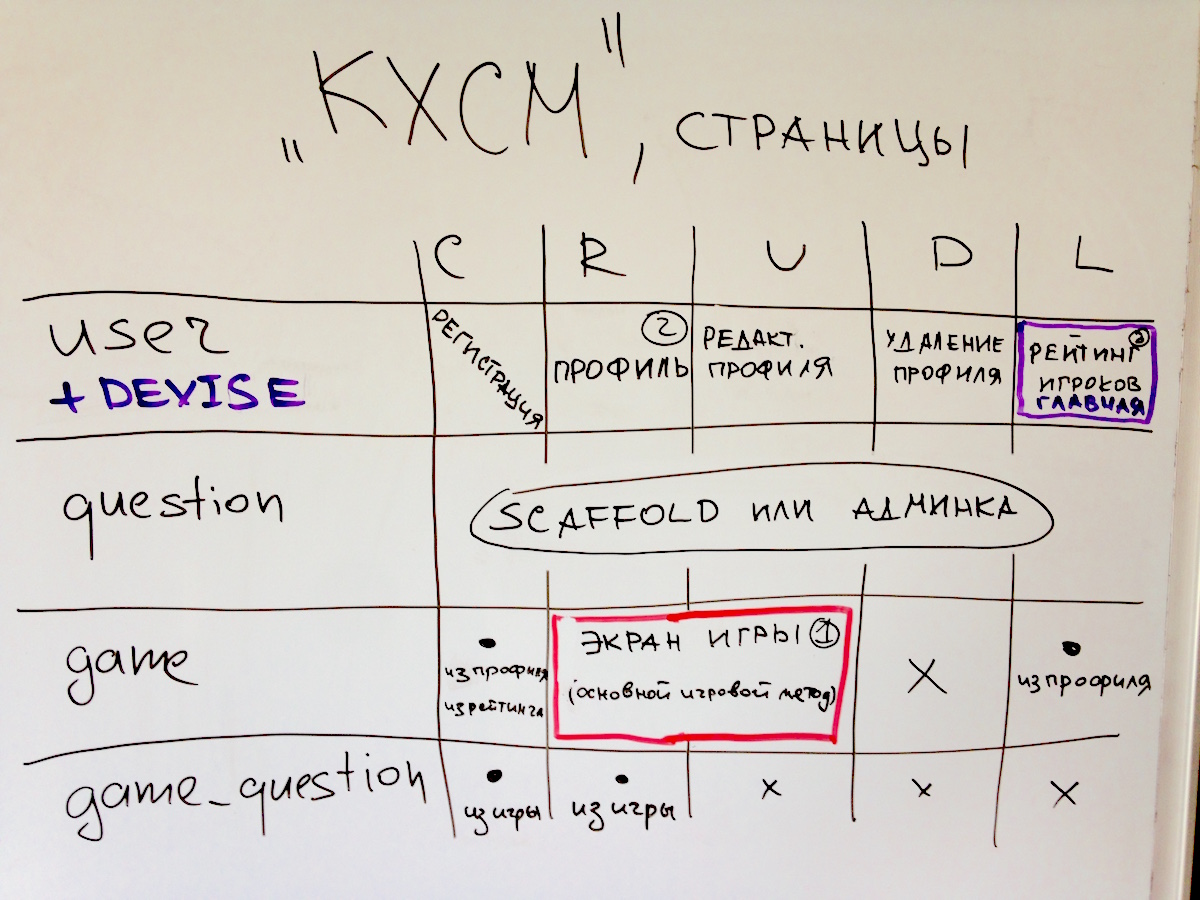 „КХСМ", СТРАНИЦЫ
C R U D L
user
+ DEVISE
РЕГИСТРАЦИЯ
2
ПРОФИЛЬ
РЕДАКТ.
ПРОФИЛЯ
УДАЛЕНИЕ
ПРОФИЛЯ
РЕЙТИНГ
ИГРОКОВ
ГЛАВНАЯ
question
SCAFFOLD ИЛИ АДМИНКА
game
• из профиля
из рейтинга
ЭКРАН ИГРЫ 1
(основной игровой метод)
X
• из профиля
game_question
• из игры
• из игры
x
x
x